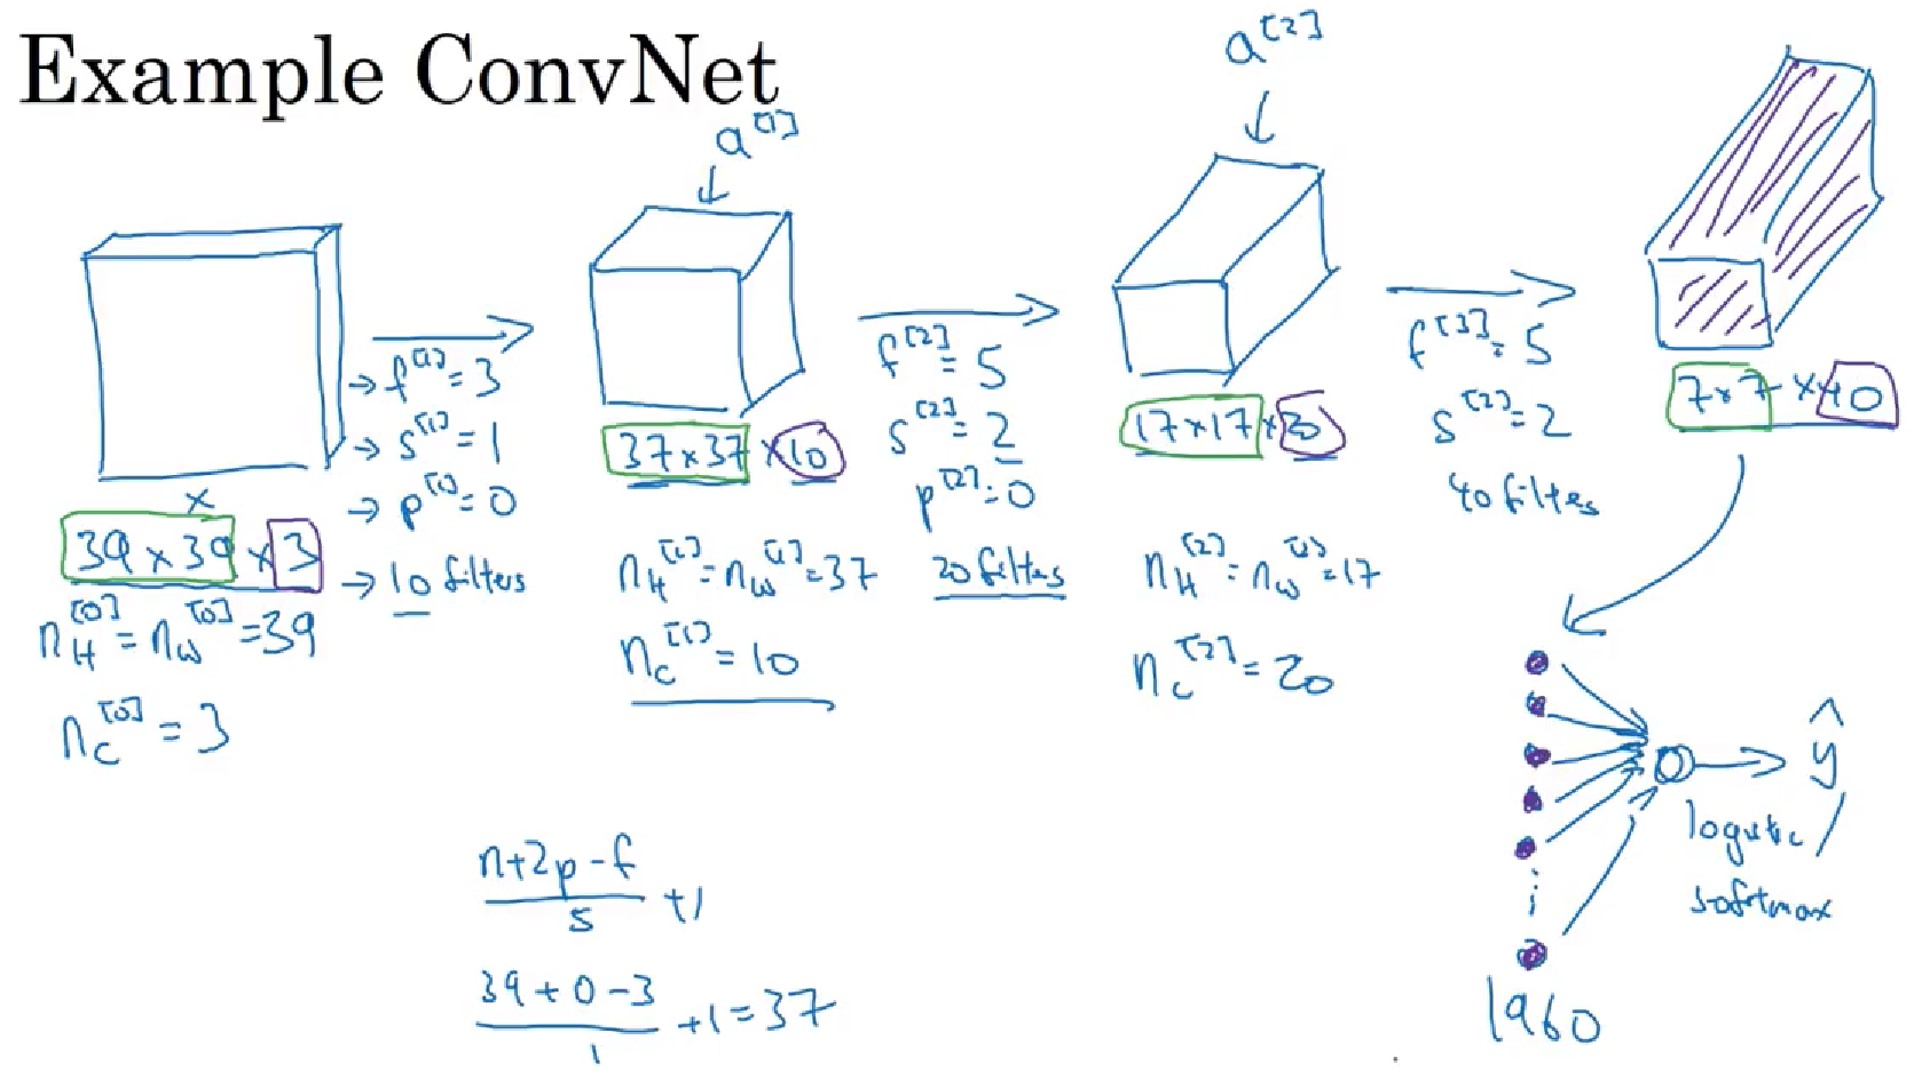 Example ConvNet
a^[1]
a^[2]
x
39 x 39 x 3
n_H^[0] = n_W^[0] = 39
n_C^[0] = 3
→ f^[1] = 3
→ s^[1] = 1
→ p^[1] = 0
→ 10 filters
37 x 37 x 10
n_H^[1] = n_W^[1] = 37
n_C^[1] = 10
f^[2] = 5
s^[2] = 2
p^[2] = 0
20 filters
17 x 17 x 20
n_H^[2] = n_W^[2] = 17
n_C^[2] = 20
f^[3] = 5
s^[2] = 2
40 filters
7 x 7 x 40
ŷ
logistic /
softmax
1960
n+2p-f / s +1
39+0-3 / 1 +1 = 37